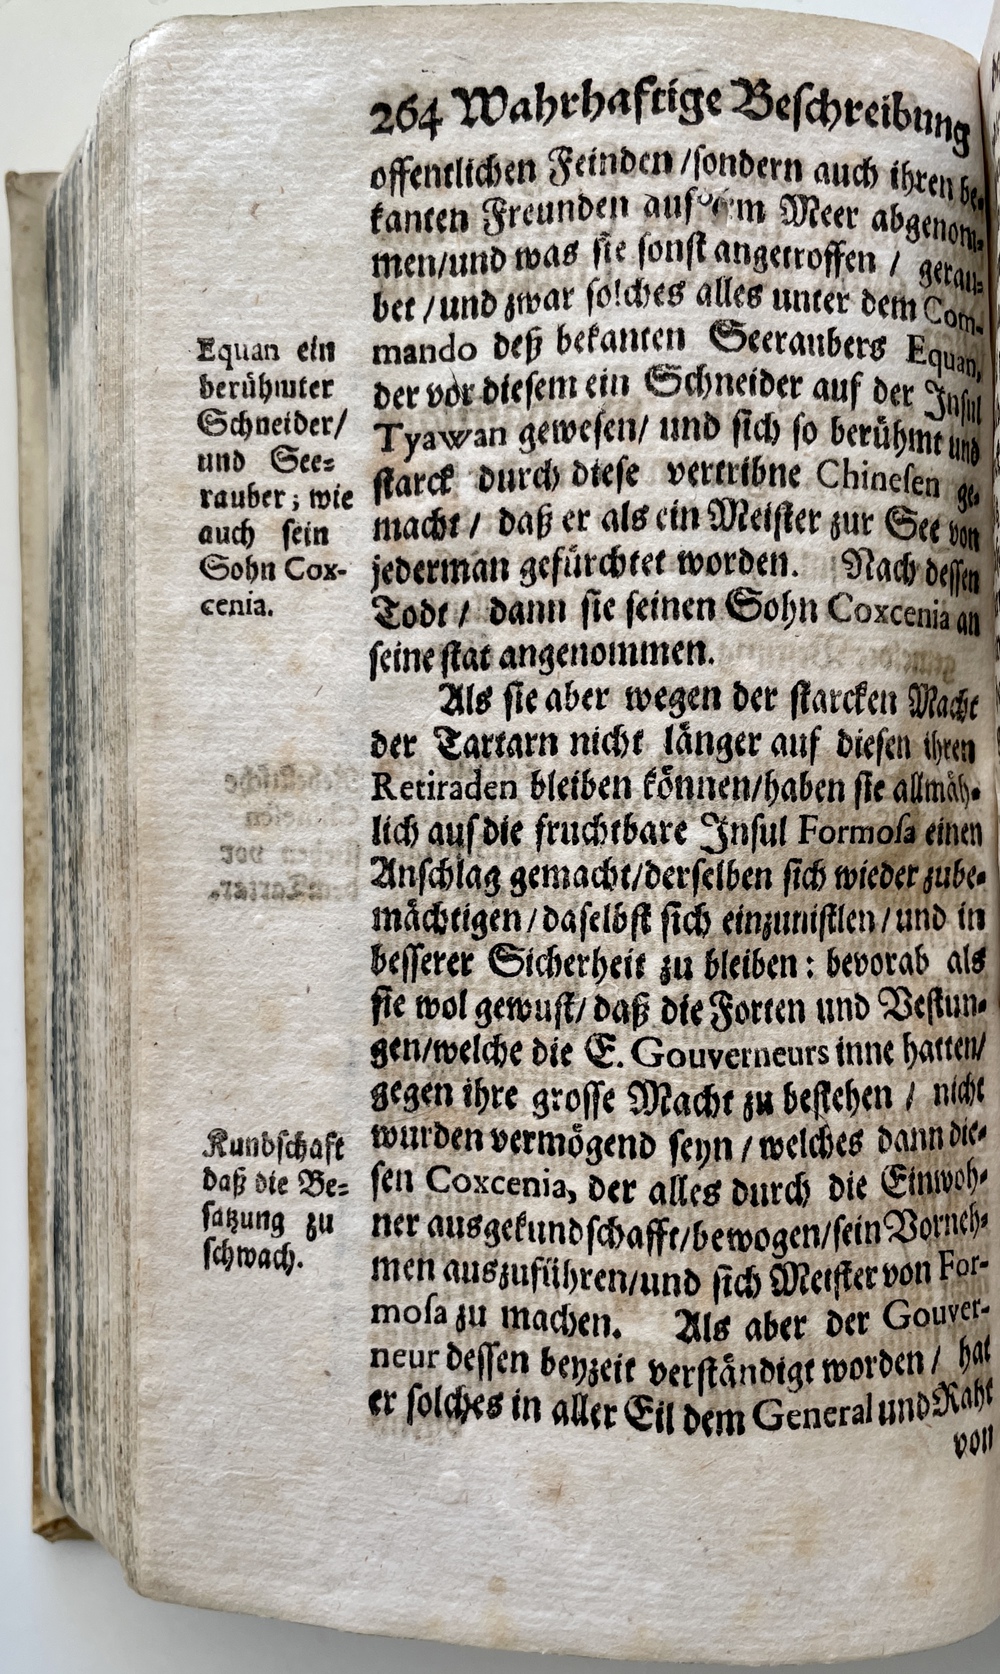 264 Wahrhaftige Beschreibung
offentlichen Feinden / sondern auch ihren be-
kanten Freunden auf dem Meer abgenom-
men / und was sie sonst angetroffen / gerau-
bet / und zwar solches alles unter dem Com-
mando deß bekanten Seeraubers Equan,
der vor diesem ein Schneider auf der Insul
Tyawan gewesen / und sich so berühmt und
starck durch diese vertribne Chinesen ge-
macht / daß er als ein Meister zur See von
jederman gefürchtet worden. Nach dessen
Todt / dann sie seinen Sohn Coxcenia an
seine stat angenommen.
Als sie aber wegen der starcken Macht
der Tartarn nicht länger auf diesen ihren
Retiraden bleiben können / haben sie allmäh-
lich auf die fruchtbare Insul Formosa einen
Anschlag gemacht / derselben sich wieder zube-
mächtigen / daselbst sich einzunistlen / und in
besserer Sicherheit zu bleiben : bevorab als
sie wol gewust / daß die Forten und Vestun-
gen / welche die E. Gouverneurs inne hatten /
gegen ihre grosse Macht zu bestehen / nicht
wurden vermögend seyn / welches dann die-
sen Coxcenia, der alles durch die Einwoh-
ner ausgekundschafft / bewogen / sein Vorneh-
men auszuführen / und sich Meister von For-
mosa zu machen. Als aber der Gouver-
neur dessen beyzeit verständigt worden / hat
er solches in aller Eil dem General und Raht
von
Equan ein
berühmter
Schneider /
und See-
rauber ; wie
auch sein
Sohn Cox-
cenia.
Kundschaft
daß die Be-
satzung zu
schwach.